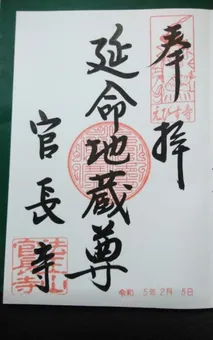 奉拝
えびす寺
延命地蔵尊
官長寺
令和 5年2月 5日